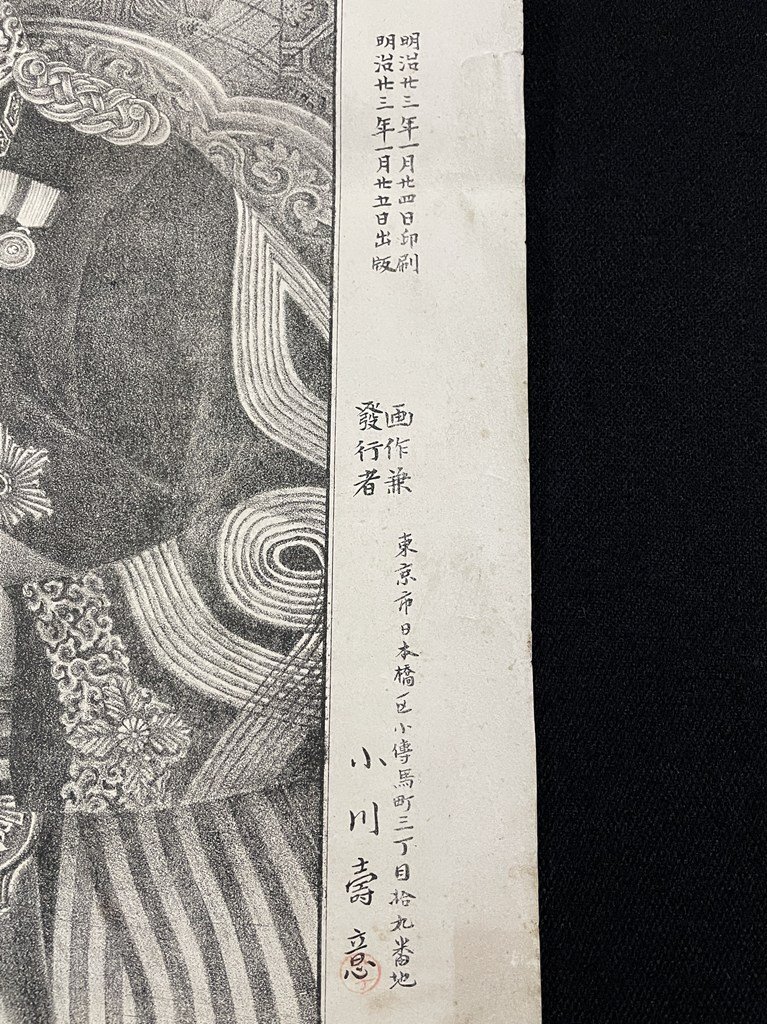 明治廿三年一月廿四日印刷
明治廿三年一月廿五日出版
画作兼
發行者
東京市日本橋区小傳馬町三丁目拾九番地
小川壽意